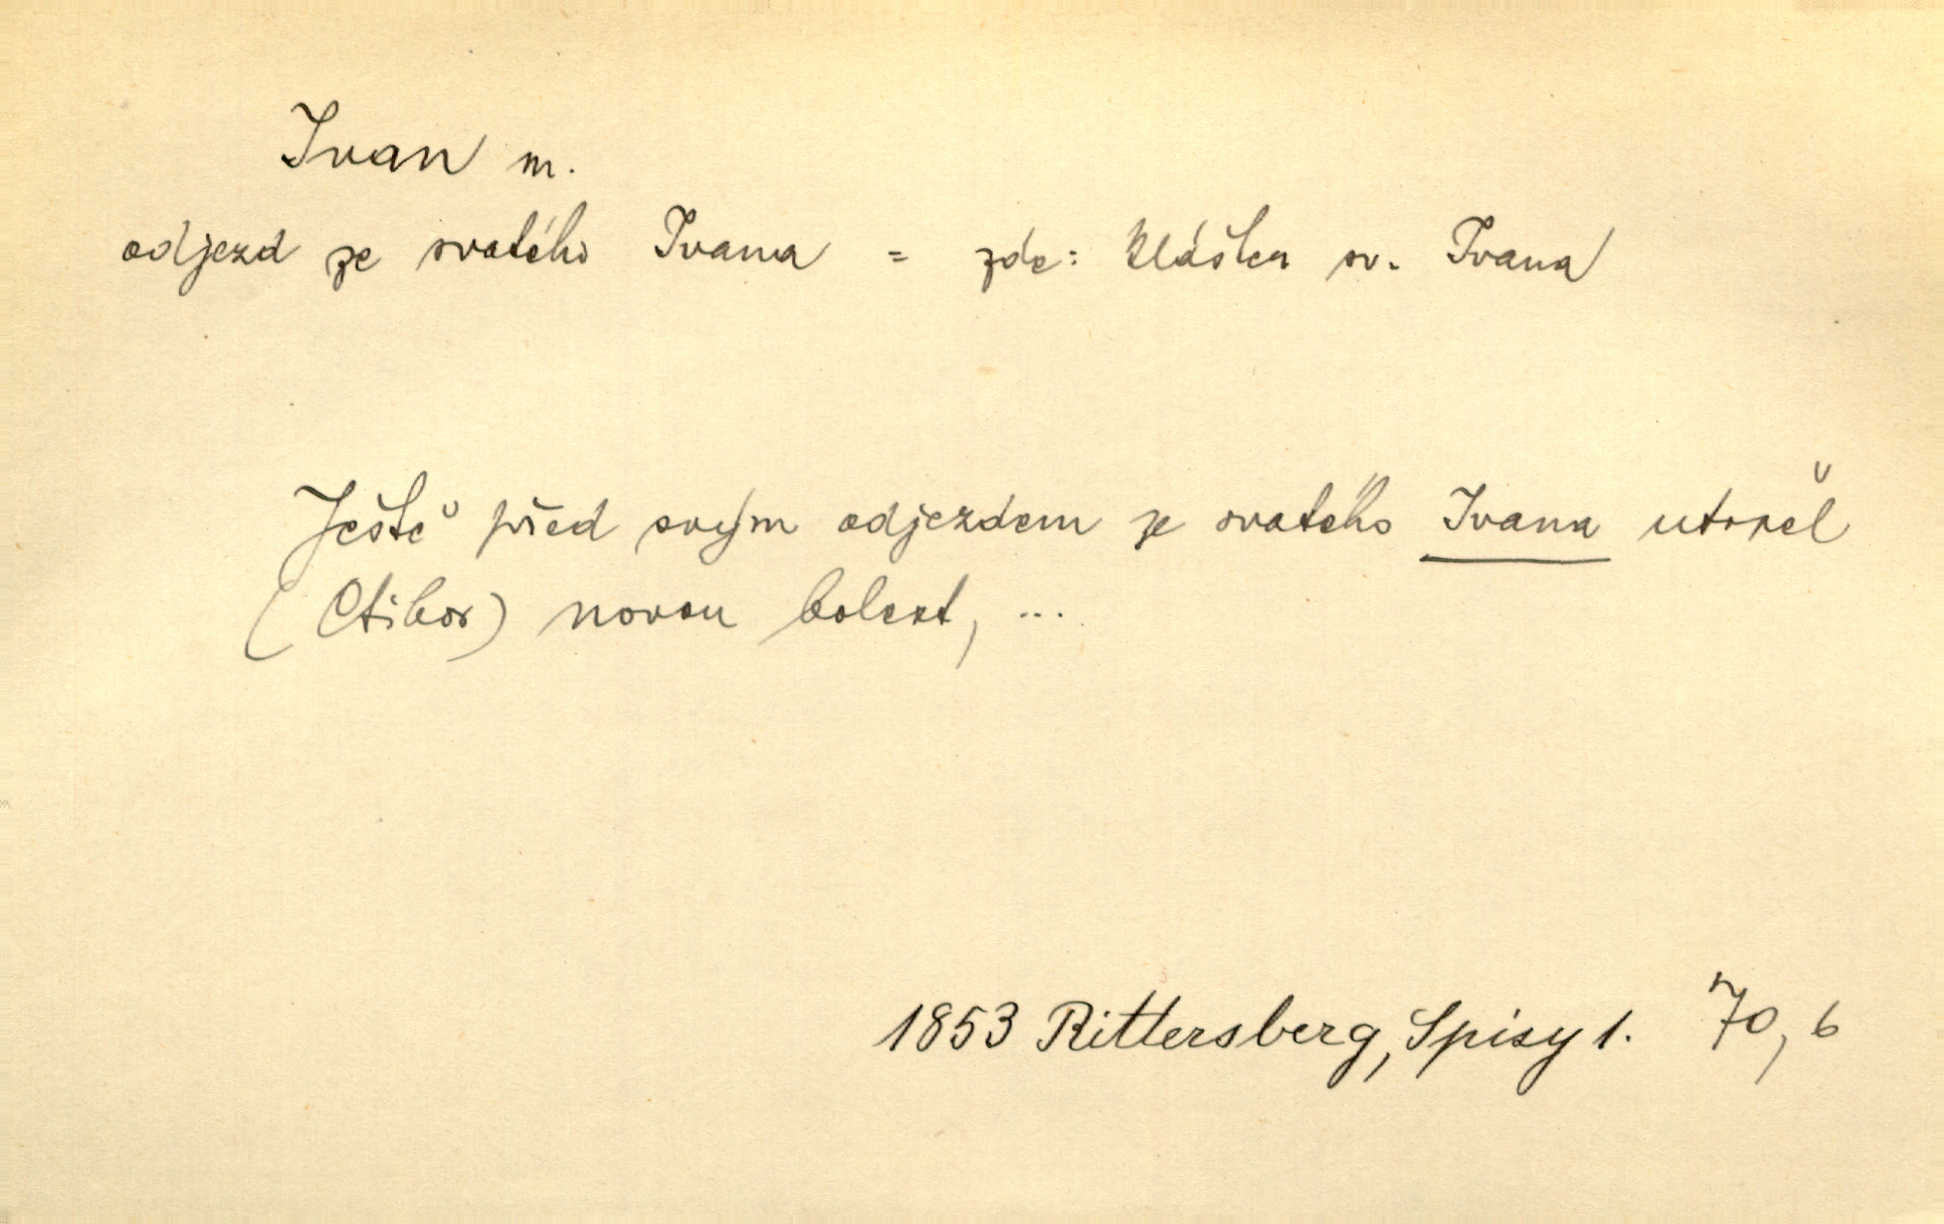 Ivan m.
odjezd ze svatého Ivana = zde: klášter sv. Ivana
Ještě před svým odjezdem ze svatého Ivana utrpěl
(Ctibor) novou bolest, ...
1853 Rittersberg, Spisy 1. 70, 6